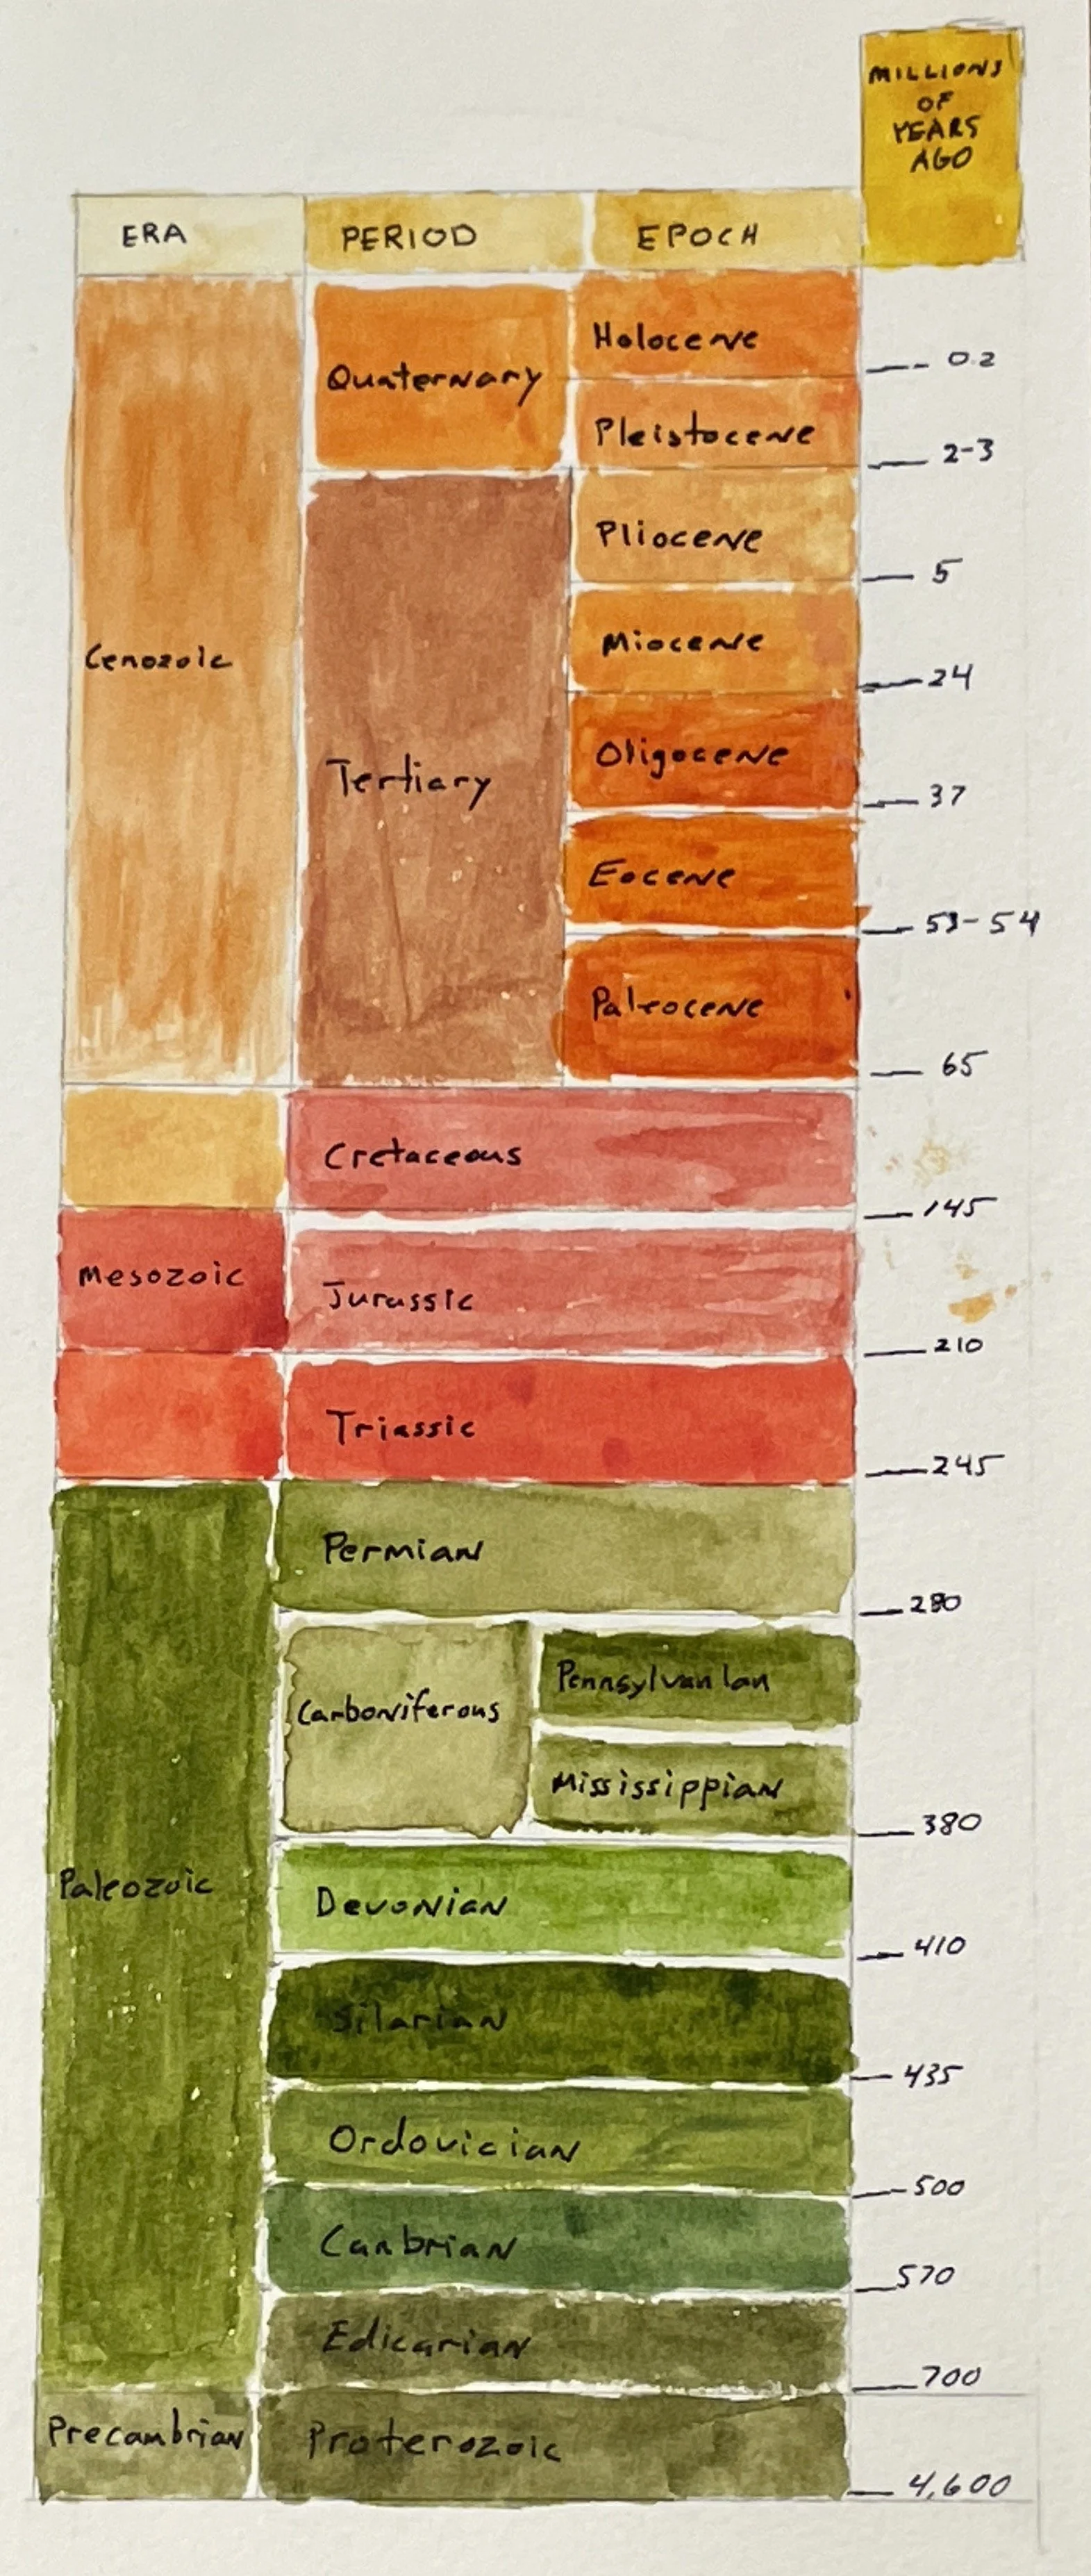 MILLIONS
OF
YEARS
AGO
ERA PERIOD EPOCH
Holocene
0.2
Quaternary
Pleistocene
2-3
Pliocene
5
Miocene
24
Cenozoic
Oligocene
37
Tertiary
Eocene
53-54
Paleocene
65
Cretaceous
145
Mesozoic
Jurassic
210
Triassic
245
Permian
280
Pennsylvanian
Carboniferous
Mississippian
380
Paleozoic
Devonian
410
Silarian
435
Ordovician
500
Canbrian
570
Edicarian
700
Precambrian Proterozoic
4,600